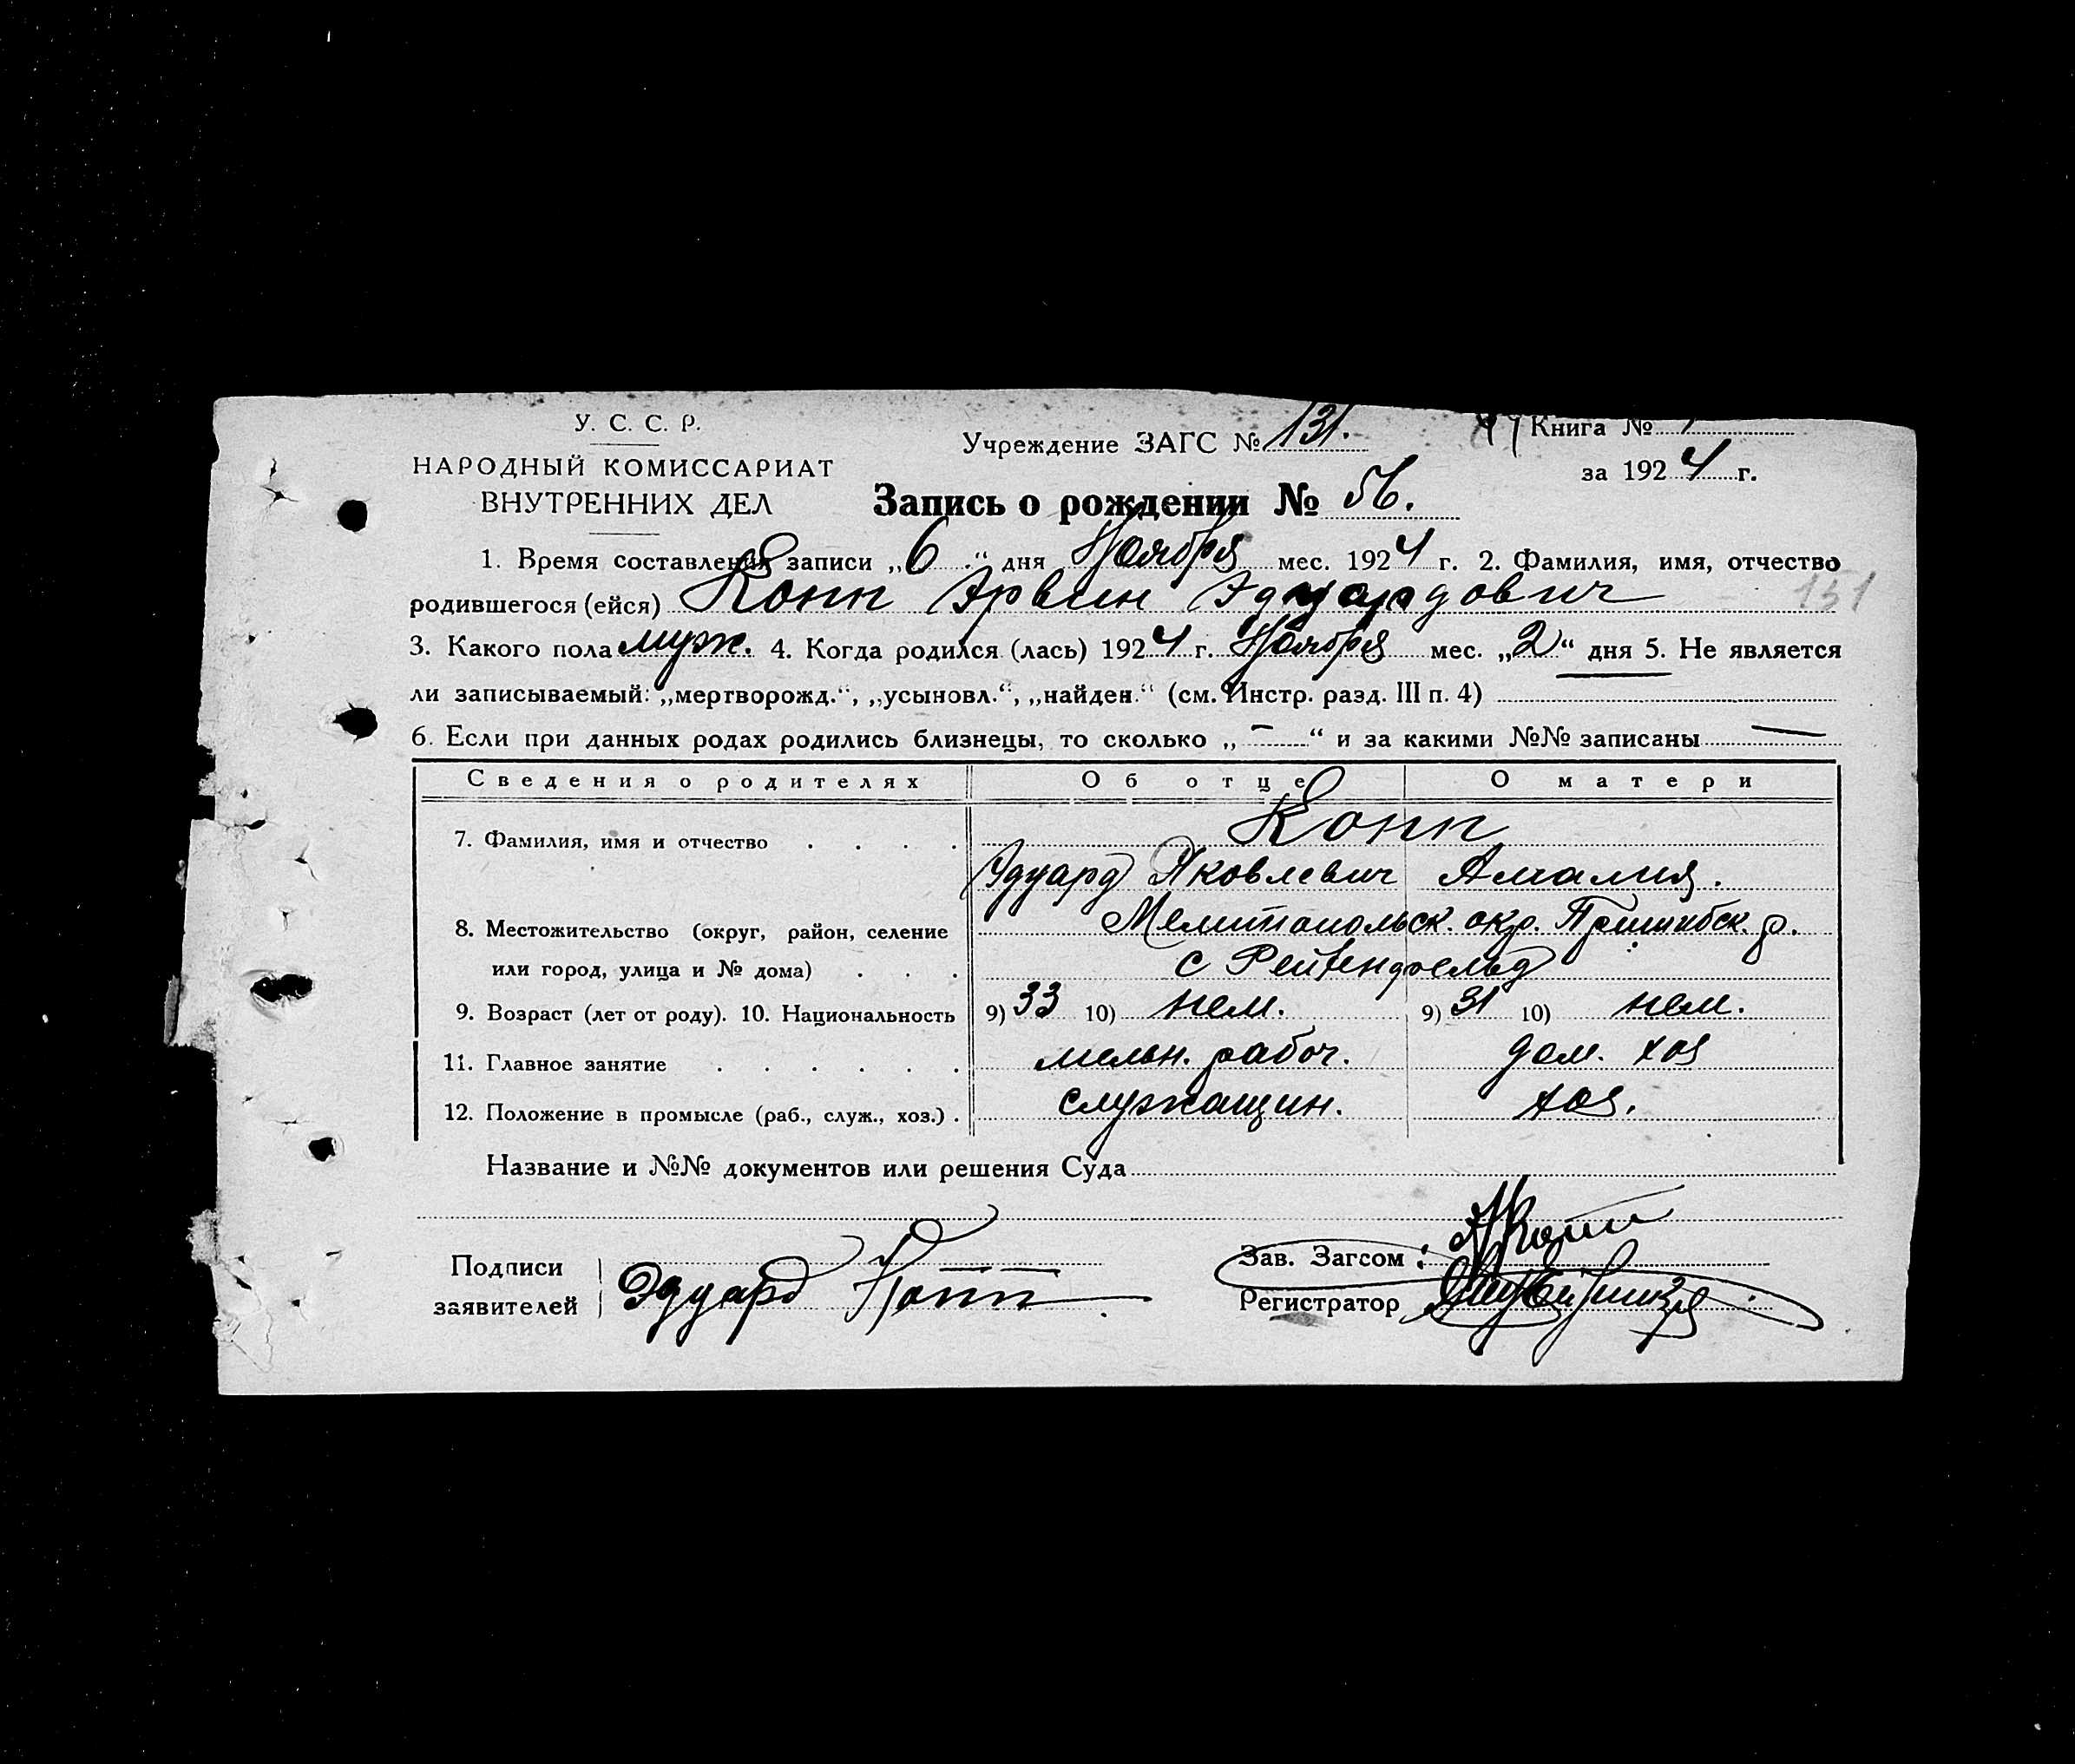 У. С. С. Р.
НАРОДНЫЙ КОМИССАРИАТ
ВНУТРЕННИХ ДЕЛ
Учреждение ЗАГС № 131.
Книга № 1
за 1924 г.
Запись о рождении № 56.
1. Время составления записи „6“ дня Ноября мес. 1924 г. 2. Фамилия, имя, отчество
родившегося (ейся) Копп Эрвин Эдуардович
151
3. Какого пола муж. 4. Когда родился (лась) 1924 г. Ноября мес. „2“ дня 5. Не является
ли записываемый: „мертворожд.“, „усыновл.“, „найден.“ (см. Инстр. разд. III п. 4)
6. Если при данных родах родились близнецы, то сколько „—“ и за какими №№ записаны —
Сведения о родителях Об отце О матери
7. Фамилия, имя и отчество . . . . Копп
Эдуард Яковлевич Амалия.
8. Местожительство (округ, район, селение Мелитопольск. окр. Пришибск. р.
или город, улица и № дома) . . . с Рейтенфельд
9. Возраст (лет от роду). 10. Национальность 9) 33 10) нем. 9) 31 10) нем.
11. Главное занятие . . . . . . мельн. рабоч. дом. хоз
12. Положение в промысле (раб., служ., хоз.) . служащин. хоз.
Название и №№ документов или решения Суда
Подписи
заявителей
Эдуард Копп
Зав. Загсом:
Регистратор